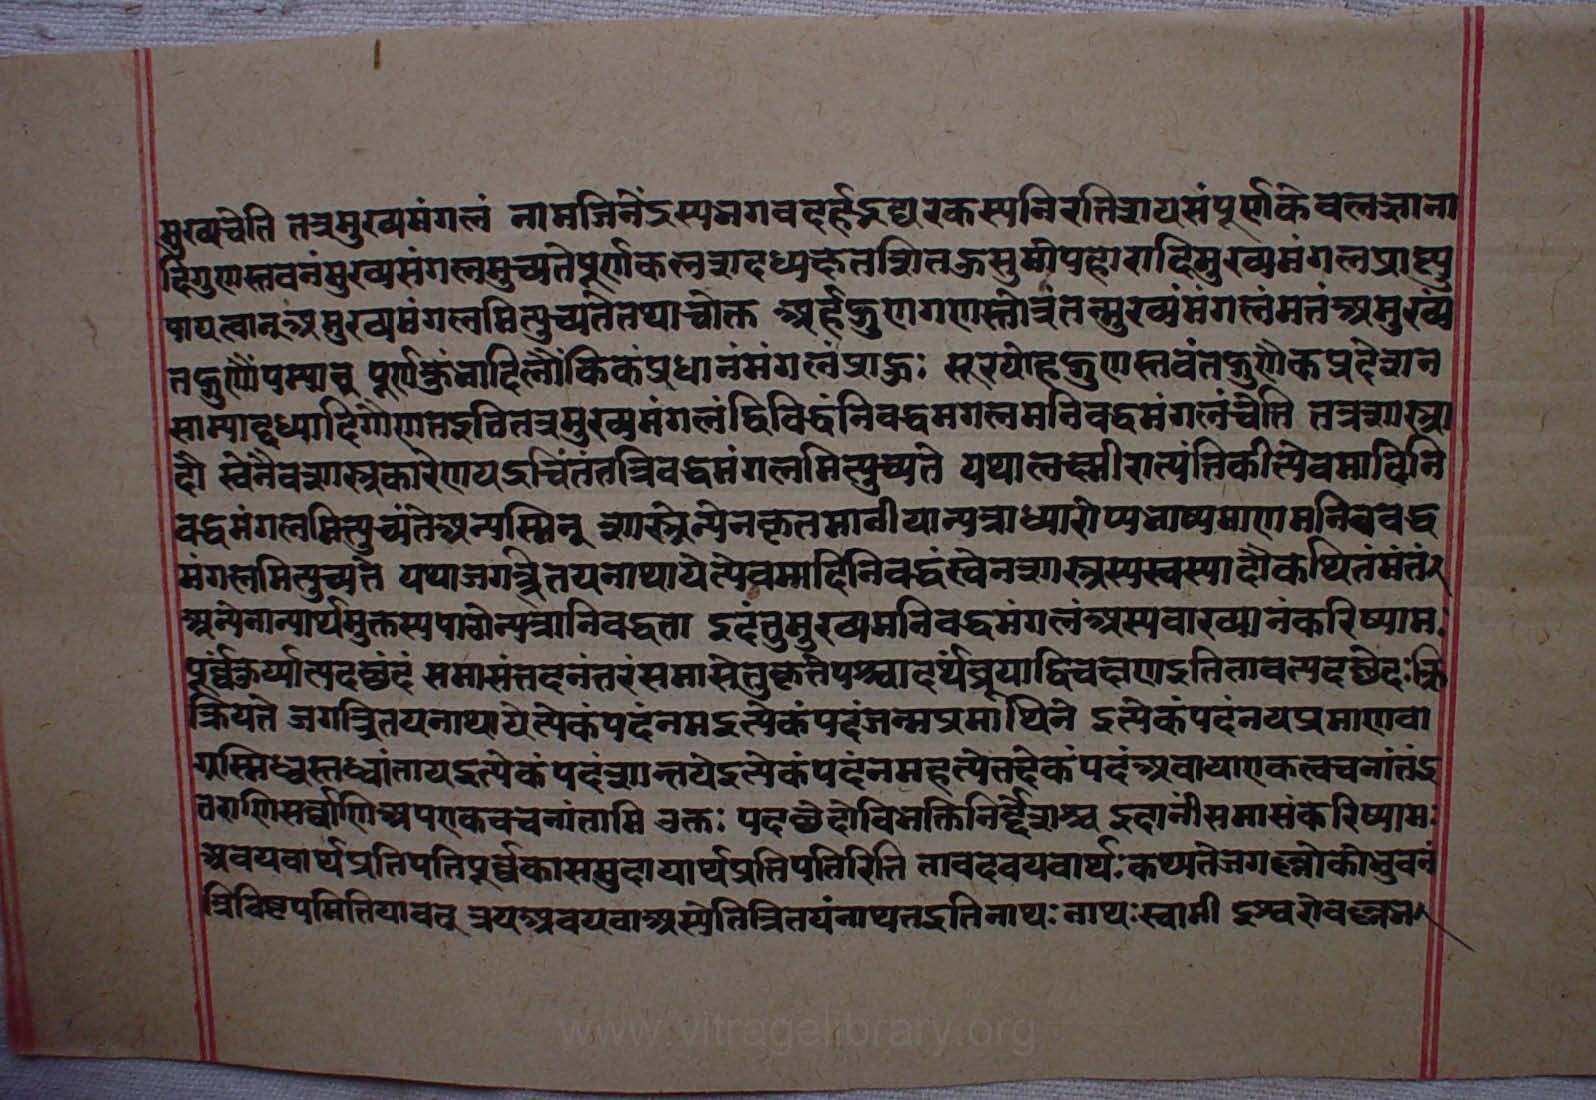 मुख्यंचेति तत्रमुख्यमंगलं नामजिनेंद्रस्यभगवदर्हद्भट्टारकस्यनिरतिशयसंपूर्णकेवलज्ञाना
दिगुणस्तवनंमुख्यमंगलमुच्यतेपूर्णकलशदध्यक्षत मुख्यमंगल
अमुख्यमंगलमित्युच्यतेतथाचोक्त अर्हद्गुणगणस्तोत्रंतन्मुख्यंमंगलंमतंअमुख्यं
पूर्णकुंभादिलौकिकंप्रधानंमंगलंप्राहुः सूरयोर्हद्गुणस्तवंतद्गुणैकप्रदेशन
साम्याद्दध्यादिगौणतइतितत्रमुख्यमंगलंद्विविद्धंनिवद्धमगलमनिवद्धमंगलंचेति तत्रशास्त्रा
दौ स्वेनैवशास्त्रकारेणयद्रचिंतंतन्निवद्धमंगलमित्युच्यते यथालक्ष्मीरात्यंतिकीत्येवमादिनि
वद्धमंगलमित्युच्यतेअन्यस्मिन् शास्त्रेन्येनकृतमानीयान्यत्राध्यारोप्यभाष्यमाणमनिववद्ध
मंगलमित्युच्यते यथाजगत्त्रितयनाथायेत्येवमादिनिवद्धंस्वेनशास्त्रस्यस्वस्यादौकथितंमंतं
अन्येनान्यार्थमुक्तस्यपाठोन्यत्रानिवद्धता इदंतुमुख्यमनिवद्धमंगलंअस्यवाख्यानंकरिष्यामः
पूर्वंकुर्य्यात्पदछंदं समासंतदनंतरंसमासेतुकृतेपश्चादर्थंब्रूयाद्विचक्षणइतितावत्पदछेदःक्रि
क्रियते जगत्त्रितयनाथायेत्येकंपदंनमइत्येकंपदंजन्मप्रमाथिने इत्येकंपदंनयप्रमाणवा
ग्रस्मिध्वस्तध्वांतायइत्येकंपदंशान्तयेइत्येकंपदंनमहत्येतद्देकंपदंअवायाएकत्वचनांतंइ
तराणिसर्वाणिअपएकवचनांतामि उक्तः पदछेदोविभक्तिनिर्द्देशश्च इदानींसमासंकरिष्यामः
अवयवार्थप्रतिपतिपूर्वकाससुदायार्थप्रतिपतिरिति तावदवयवार्थःकथ्यतेजगल्लोकोभुवनं
त्रिविष्टपमितियावत् त्रयअवयवाअस्येतित्रितयंनाथतइतिनाथः नाथःस्वामी इश्वरोवल्लभ
www.vitragelibrary.org